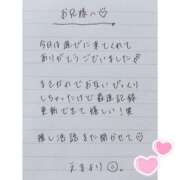 お兄様へ♡
今日は遊びに来てくれて
ありがとうございました
まさかの
でおないびっくり
しちゃったけど最速記録
更新できて嬉しい！笑
推し活話また聞かせて♡
えまより